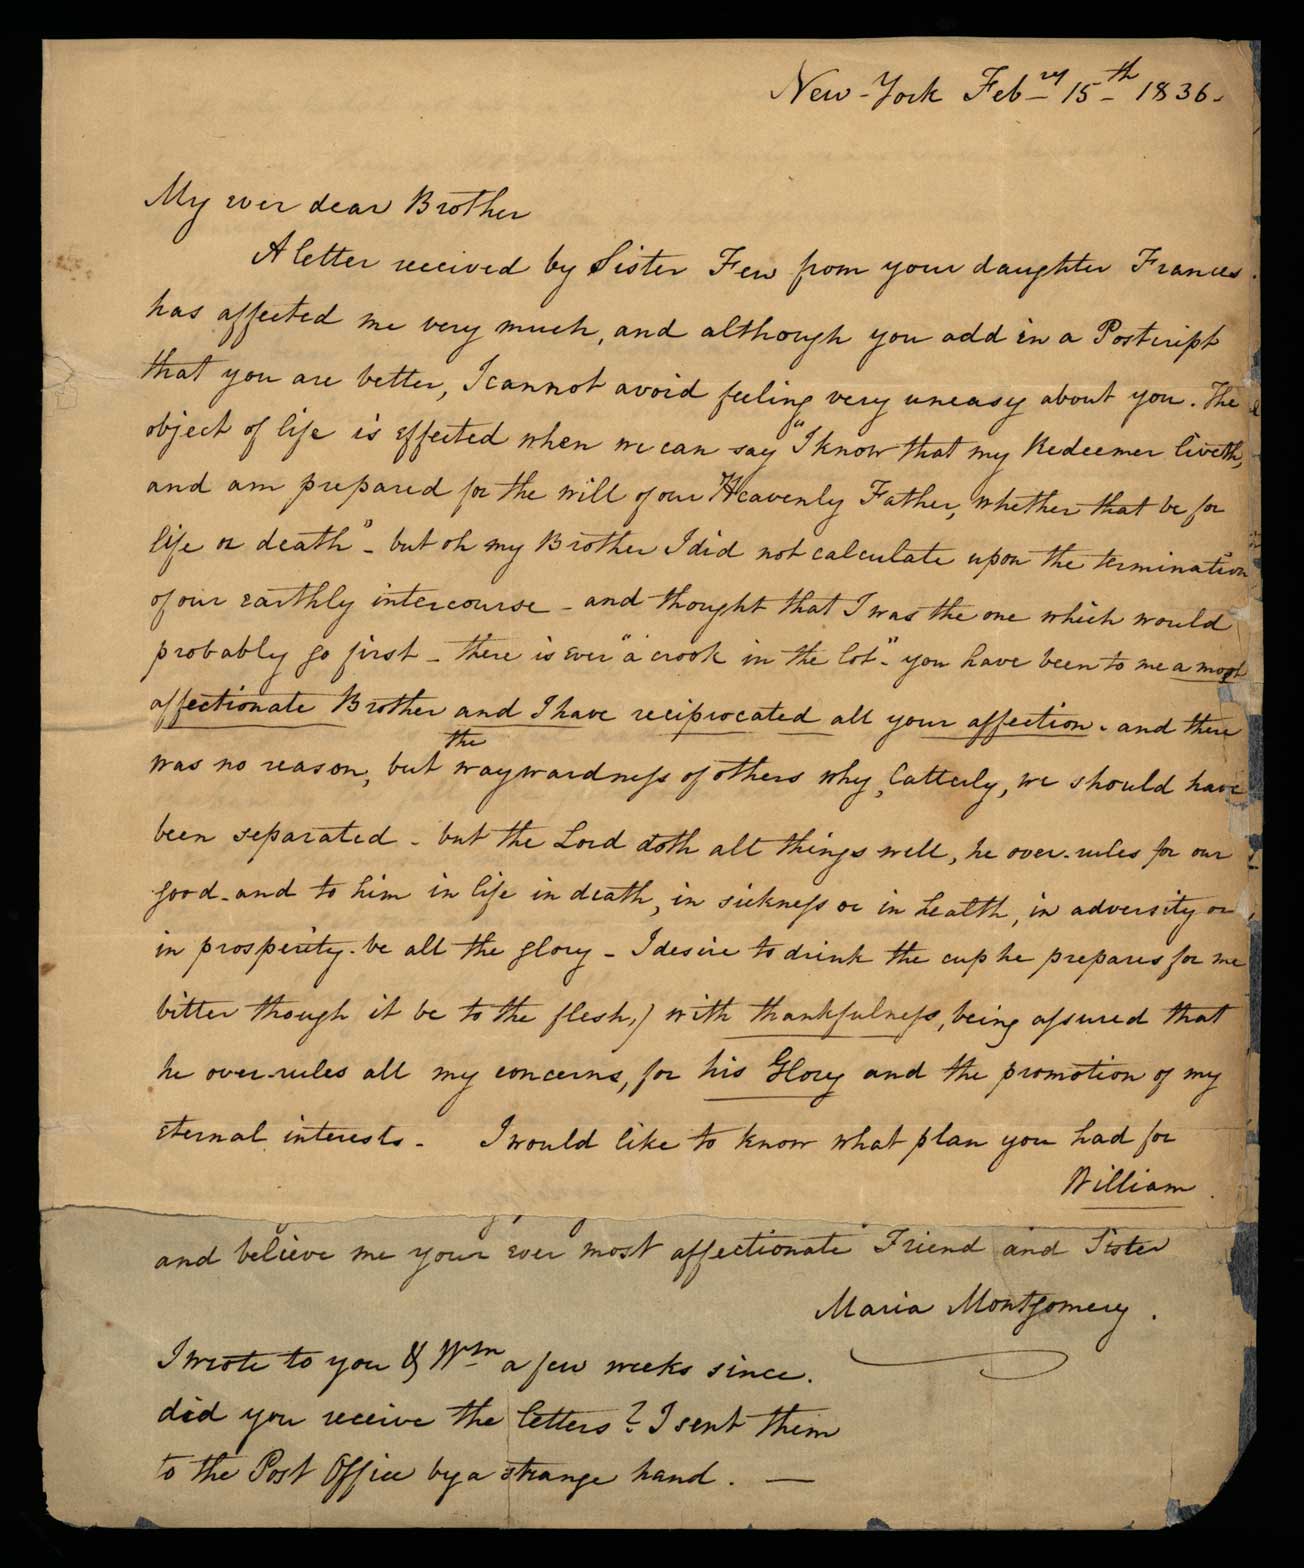 New-York Feb-ry 15-th 1836-
My ever dear Brother
A letter received by Sister Few from your daughter Frances
has affected me very much, and although you add in a Postcript
that you are better, I cannot avoid feeling very uneasy about you. The
object of life is effected when we can say "I know that my Redeemer liveth,
and am prepared for the will of our Heavenly Father, whether that be for
life or death" - but oh my Brother I did not calculate upon the termination
of our earthly intercourse - and thought that I was the one which would
probably go first - there is ever "a crook in the lot" - you have been to me a most
affectionate Brother and I have reciprocated all your affection - and there
was no reason, but the waywardness of others why, latterly, we should have
been separated - but the Lord doth all things well, he over-rules for our
good - and to him in life in death, in sickness or in health, in adversity or
in prosperity - be all the glory - I desire to drink the cup he prepares for me
bitter though it be to the flesh,) with thankfulness, being assured that
he over-rules all my concerns, for his Glory and the promotion of my
eternal interests - I would like to know what plan you had for
William
and believe me your ever most affectionate Friend and Sister
Maria Montgomery.
I wrote to you & Wm a few weeks since.
did you receive the letters? I sent them
to the Post Office by a strange hand. —